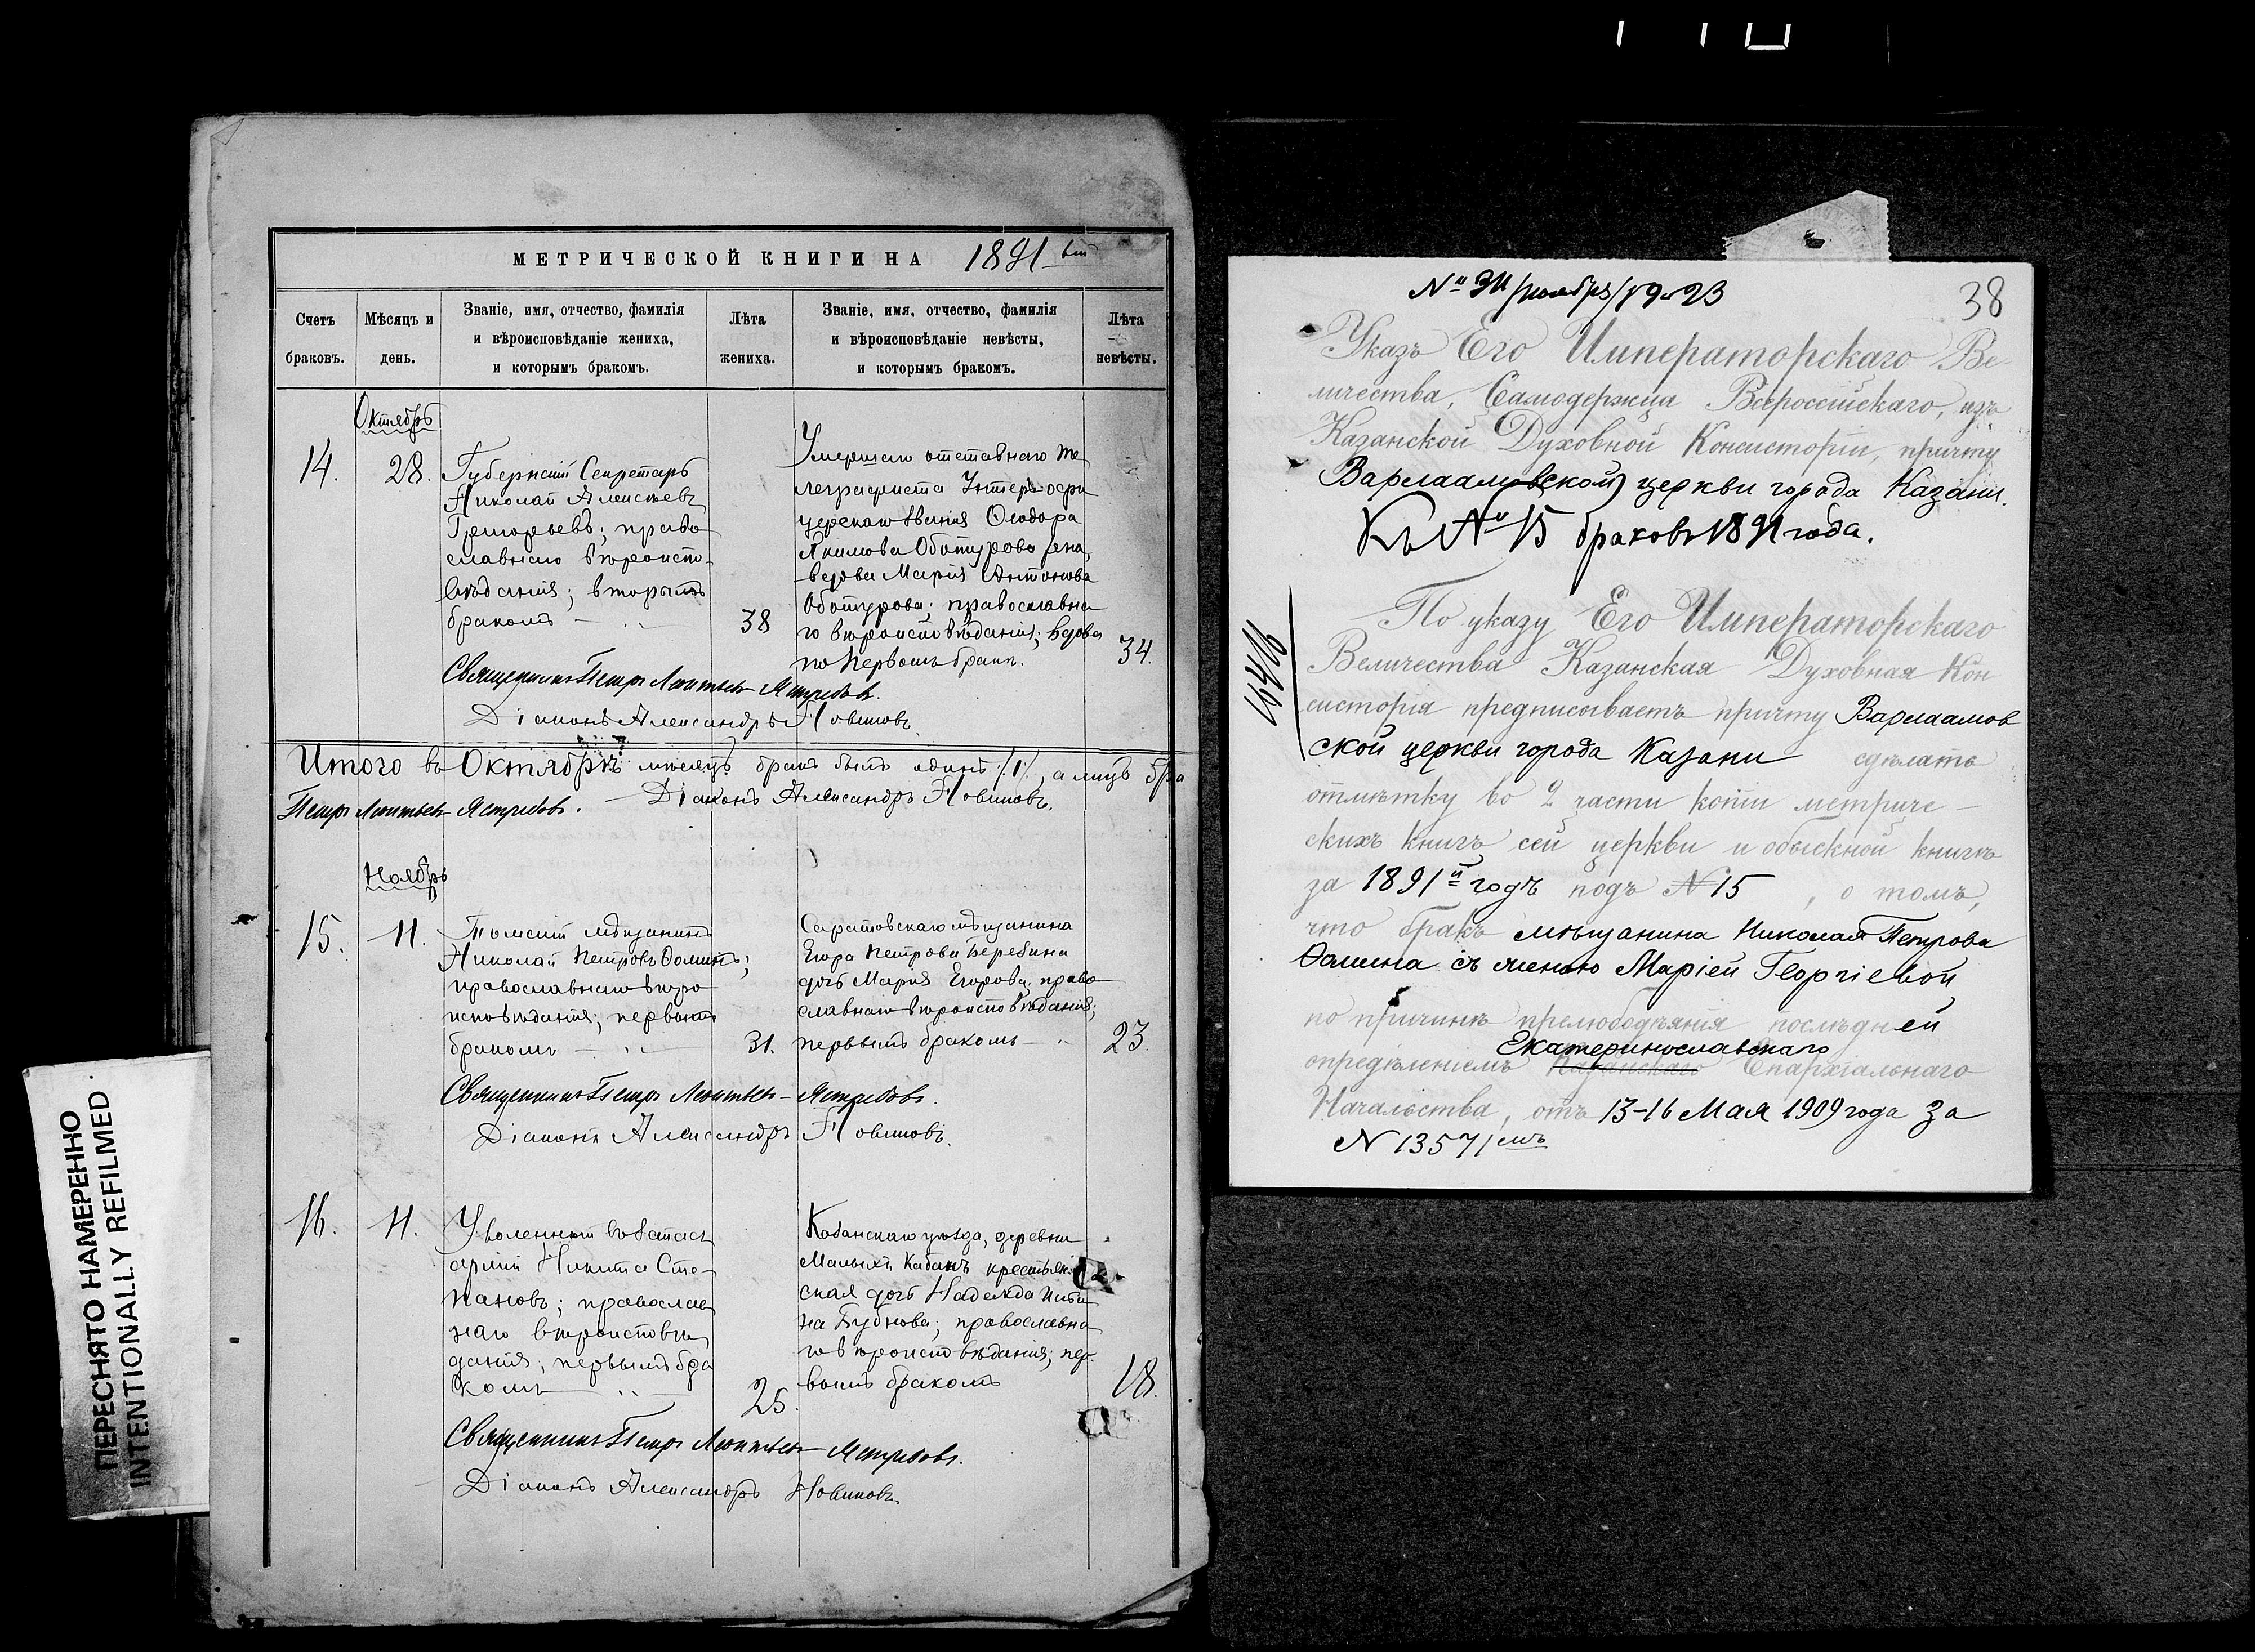 МЕТРИЧЕСКОЙ КНИГИ НА 1891
Счетъ браковъ.
Мѣсяцъ и день.
Званіе, имя, отчество, фамилія
и вѣроисповѣданіе жениха,
и которымъ бракомъ.
Лѣта жениха.
Званіе, имя, отчество, фамилія
и вѣроисповѣданіе невѣсты,
и которымъ бракомъ.
Лѣта невѣсты.
Октябрь
14.
28.
Губернскій Секретарь
Николай Алексѣевъ
Григорьевъ; право
славнаго вѣроиспо-
вѣданія; вторымъ
бракомъ
38
Умершаго отставнаго те
леграфиста Унтеръ-офи
церскаго званія Ѳеодора
Якимова Обатурова жена,
вдова Марія Антонова
Обатурова; православна
го вѣроисповѣданія; вдова
по первомъ бракѣ.
34.
Священникъ Петръ Леонтьевъ Ястребовъ.
Діаконъ Александръ Новиковъ.
Итого въ Октябрѣ мѣсяцѣ бракъ былъ одинъ /1/, а лицъ бра
Петръ Леонтьевъ Ястребовъ. Діаконъ Александръ Новиковъ.
Ноябрь
15.
11.
Томскій мѣщанинъ
Николай Петровъ Ѳоминъ;
православнаго вѣро
исповѣданія; первымъ
бракомъ
31.
Саратовскаго мѣщанина
Егора Петрова Веребина
дочь Марія Егорова; право
славнаго вѣроисповѣданія;
первымъ бракомъ
23.
Священникъ Петръ Леонтьевъ Ястребовъ.
Діаконъ Александръ Новиковъ.
16.
11.
Уволенный въ запасъ
арміи Никита Сте-
пановъ; православ
наго вѣроисповѣ
данія; первымъ бра
комъ
25.
Казанскаго уѣзда, деревни
Малыхъ Кабанъ крестьян
ская дочь Надежда
на Бубнова; православна
го вѣроисповѣданія; пер-
вымъ бракомъ
18.
Священникъ Петръ Леонтьевъ Ястребовъ.
Діаконъ Александръ Новиковъ.
ПЕРЕСНЯТО НАМЕРЕННО
INTENTIONALLY REFILMED
38
Указъ Его Императорскаго Ве
личества, Самодержца Всероссійскаго, изъ
Казанской Духовной Консисторіи, причту
Варлаамовской церкви города Казани.
Къ № 15 браковъ 1891 года.
По указу Его Императорскаго
Величества Казанская Духовная Кон
систорія предписываетъ причту Варлаамов
ской церкви города Казани сдѣлать
отмѣтку во 2 части копіи метриче-
скихъ книгъ сей церкви и обыскной книгѣ
за 1891й годъ подъ № 15, о томъ,
что бракъ мѣщанина Николая Петрова
Ѳомина съ женою Маріей Георгіевой
по причинѣ прелюбодѣянія послѣдней
Екатеринославскаго
опредѣленіемъ Казанскаго Епархіальнаго
Начальства, отъ 13-16 Мая 1909 года за
№ 13571емъ